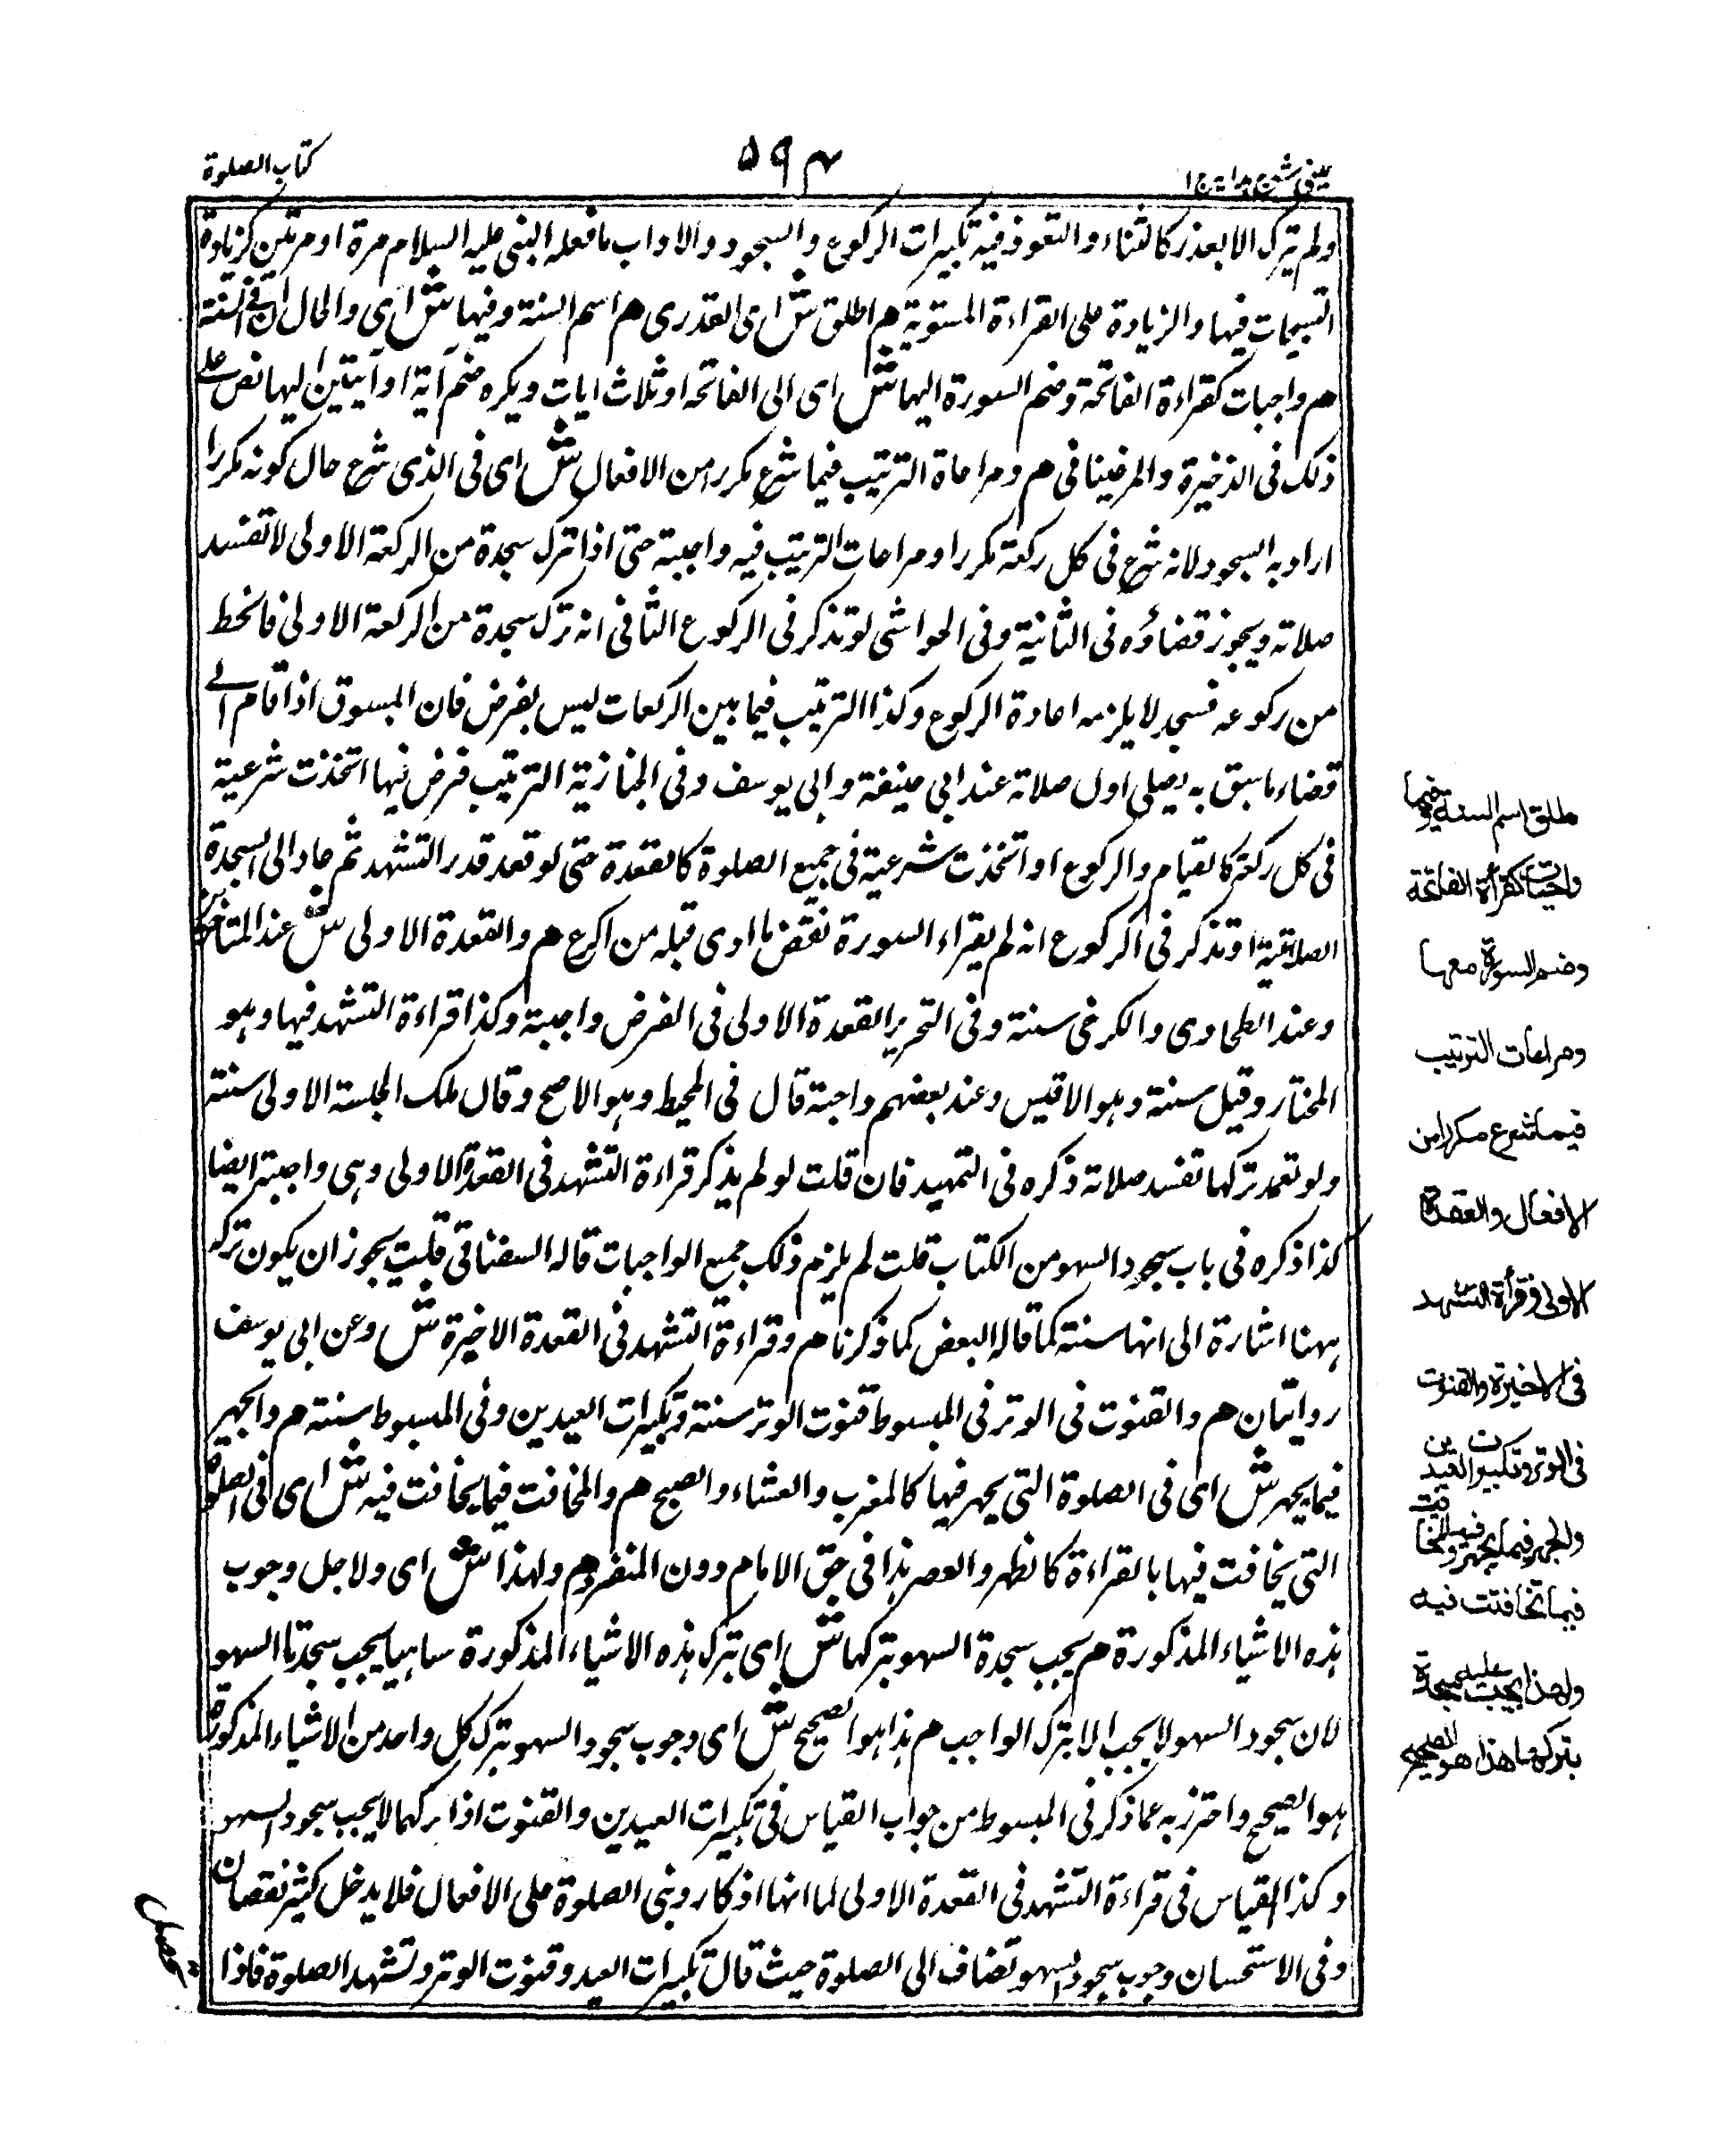 عینی شرح هدایة ج ١
٥٩٤
كتاب الصلوة
ولم یترک الا بعذر کالثناء والتعوذ فیه تکبیرات الرکوع والسجود والاداب ما فعله النبی علیه السلام مرة او مرتین کزیادة
التسبیحات فیها والزیادة علی القراءة المسنونة هم اطلق ش ای القدوری هم اسم السنة وفیها ش ای والحال ان فی السنة
هم واجبات کقراءة الفاتحة وضم السورة الیها ش ای الی الفاتحه او ثلاث ایات ویکره ضم آیة او آیتین الیها نص علی
ذلک فی الذخیرة والمرغینانی هم ومراعاة الترتیب فیما شرع مکررا من الافعال ش ای فی الذی شرع حال کونه مکررا
اراد به السجود لانه شرع فی کل رکعة مکررا ومراعات الترتیب فیه واجبة حتی اذا ترک سجدة من الرکعة الاولی لا تفسد
صلاته ویجوز قضاؤه فی الثانیة وفی الحواشی لو تذکر فی الرکوع الثانی انه ترک سجدة من الرکعة الاولی فانحط
من رکوعه فسجد لا یلزمه اعادة الرکوع وکذا الترتیب فیما بین الرکعات لیس بفرض فان المسبوق اذا قام الی
قضاء ما سبق به یصلی اول صلاته عند ابی حنیفة وابی یوسف وفی الجنازیة الترتیب فرض فیها اتخذت شرعیة
فی کل رکعة کالقیام والرکوع او اتخذت شرعیة فی جمیع الصلوة کالقعدة حتی لو قعد قدر التشهد ثم عاد الی السجدة
الصلاتیة او تذکر فی الرکوع انه لم یقراء السورة نقض ما ادی قبله من الرکوع هم والقعدة الاولی ش عند المتاخرین
وعند الطحاوی والکرخی سنة وفی التحریر القعدة الاولی فی الفرض واجبة وکذا قراءة التشهد فیها وهو
المختار وقیل سنة وهو الاقیس وعند بعضهم واجبة قال فی المحیط وهو الاصح وقال ملک الجلسة الاولی سنة
ولو تعمد ترکها تفسد صلاته ذکره فی التمهید فان قلت لو لم یذکر قراءة التشهد فی القعدة الاولی وهی واجبة ایضا
کذا ذکره فی باب سجود السهو من الکتاب قلت لم یلزم ذلک جمیع الواجبات قاله السغناقی قلت یجوز ان یکون ترکه
ههنا اشارة الی انها سنة کما قاله البعض کما ذکرنا هم وقراءة التشهد فی القعدة الاخیرة ش وعن ابی یوسف
روایتان هم والقنوت فی الوتر فی المبسوط قنوت الوتر سنة وتکبیرات العیدین وفی المبسوط سنة هم والجهر
فیما یجهر ش ای فی الصلوة التی یجهر فیها کالمغرب والعشاء والصبح هم والمخافت فیما یخافت فیه ش ای فی الصلوة
التی یخافت فیها بالقراءة کالظهر والعصر هذا فی حق الامام دون المنفرد هم ولهذا ش ای ولاجل وجوب
هذه الاشیاء المذکورة هم یجب سجدة السهو بترکها ش ای بترک هذه الاشیاء المذکورة ساهیا یجب سجدتا السهو
لان سجود السهو لا یجب الا بترک الواجب هم هذا هو الصحیح ش ای وجوب سجود السهو بترک کل واحد من الاشیاء المذکورة
هو الصحیح واحترز به عما ذکر فی المبسوط من جواب القیاس فی تکبیرات العیدین والقنوت اذا ترکهما لا یجب سجود السهو
وکذا القیاس فی قراءة التشهد فی القعدة الاولی لما انها اذکار وبنی الصلوة علی الافعال فلا یدخل کثیر نقصان
وفی الاستحسان وجوب سجود السهو تضاف الی الصلوة حیث قال تکبیرات العید وقنوت الوتر وتشهد الصلوة فاذا
مطلق اسم السنة وفیها
واجبات کقرأة الفاتحة
وضم السورة معها
ومراعات الترتیب
فیما شرع مکررا من
الافعال والقعدة
الاولی وقرأة التشهد
فی الاخیرة والقنوت
فی الوتر وتکبیرات العیدین
والجهر فیما یجهر فیه والمخافت
فیما تخافتت فیه
ولهذا یجب علیه سجدة
بترکها هذا هو الصحیح